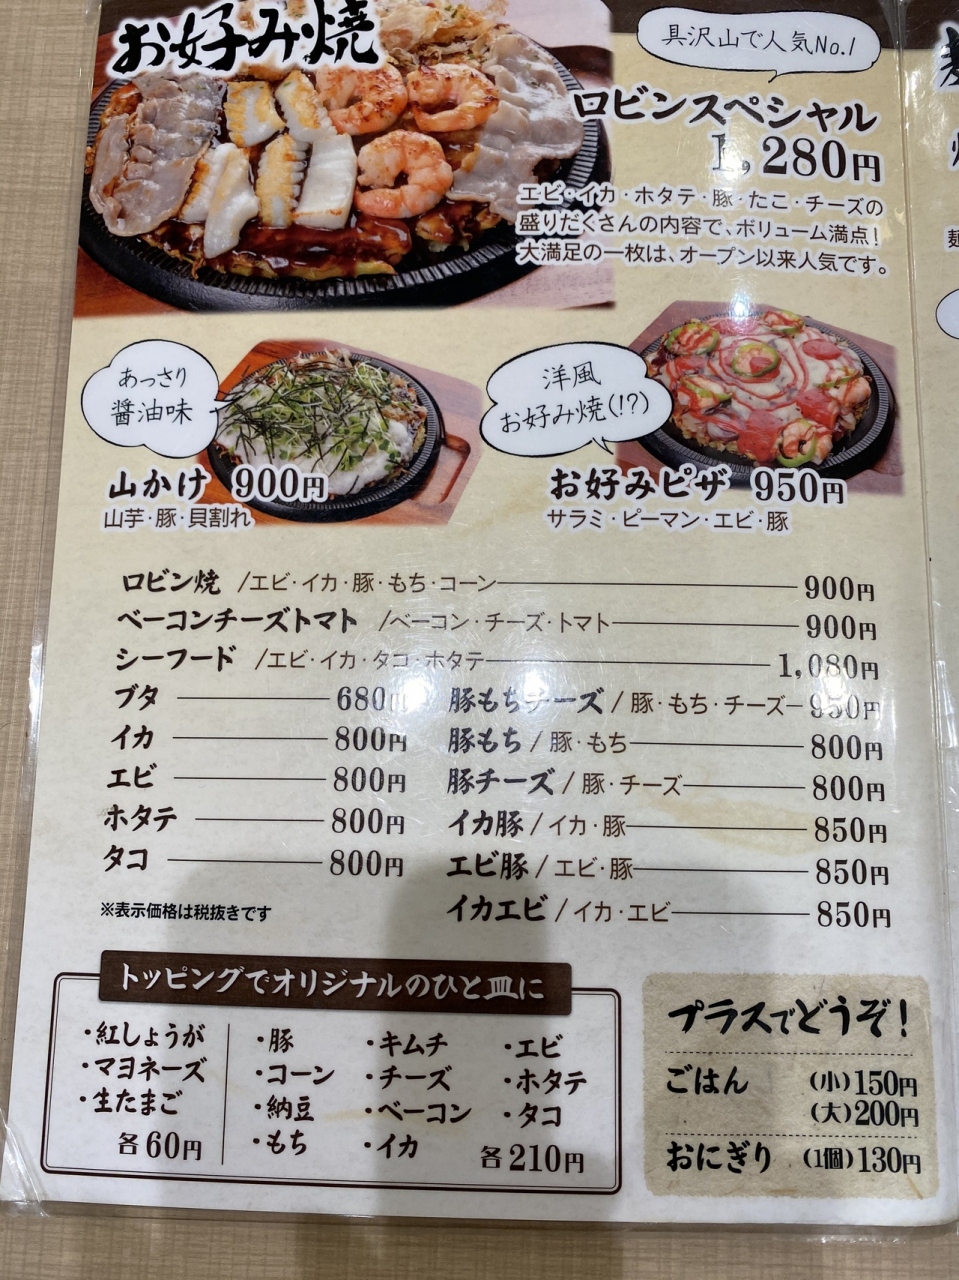 お好み焼
具沢山で人気No.1
ロビンスペシャル
1,280円
エビ・イカ・ホタテ・豚・たこ・チーズの
盛りだくさんの内容で、ボリューム満点!
大満足の一枚は、オープン以来人気です。
あっさり
醤油味
山かけ 900円
山芋・豚・貝割れ
洋風
お好み焼(!?)
お好みピザ 950円
サラミ・ピーマン・エビ・豚
ロビン焼 /エビ・イカ・豚・もち・コーン 900円
ベーコンチーズトマト /ベーコン・チーズ・トマト 900円
シーフード /エビ・イカ・タコ・ホタテ 1,080円
ブタ 680円
イカ 800円
エビ 800円
ホタテ 800円
タコ 800円
※表示価格は税抜きです
豚もちチーズ / 豚・もち・チーズ 950円
豚もち / 豚・もち 800円
豚チーズ / 豚・チーズ 800円
イカ豚 / イカ・豚 850円
エビ豚 / エビ・豚 850円
イカエビ / イカ・エビ 850円
トッピングでオリジナルのひと皿に
・紅しょうが
・マヨネーズ
・生たまご
各60円
・豚
・コーン
・納豆
・もち
・キムチ
・チーズ
・ベーコン
・イカ
・エビ
・ホタテ
・タコ
各210円
プラスでどうぞ!
ごはん (小)150円
(大)200円
おにぎり (1個)130円